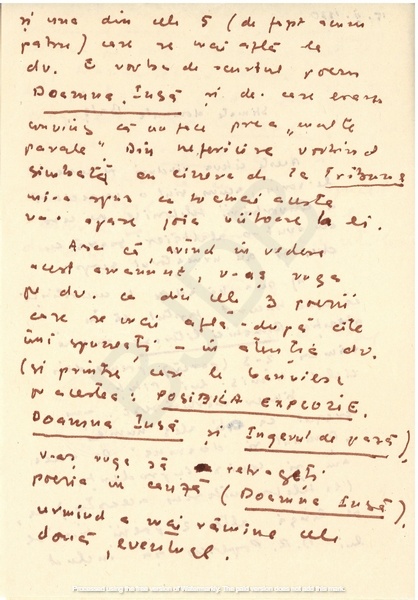 și una din cele 5 (de fapt acum
patru) care se mai află la
dv. E vorba de scurtul poem
Doamna Iusă și de care eram
convins că nu face prea „multe
parale". Din nefericire vorbind
sîmbătă cu cineva de la Tribuna
mi-a spus că tocmai acesta
va apare joia viitoare la ei.
Așa că avînd în vedere
acest amănunt, v-aș ruga
pe dv. ca din cele 3 poezii
care se mai află - după cîte
îmi spuneați - în atenția dv.
(și printre care le bănuiesc
pe acestea: POSIBILA EXPLOZIE,
Doamna Iusă și Îngerul de pază)
v-aș ruga să retrageți
poezia în cauză (Doamna Iusă),
urmînd a mai rămîne cele
două, eventual.